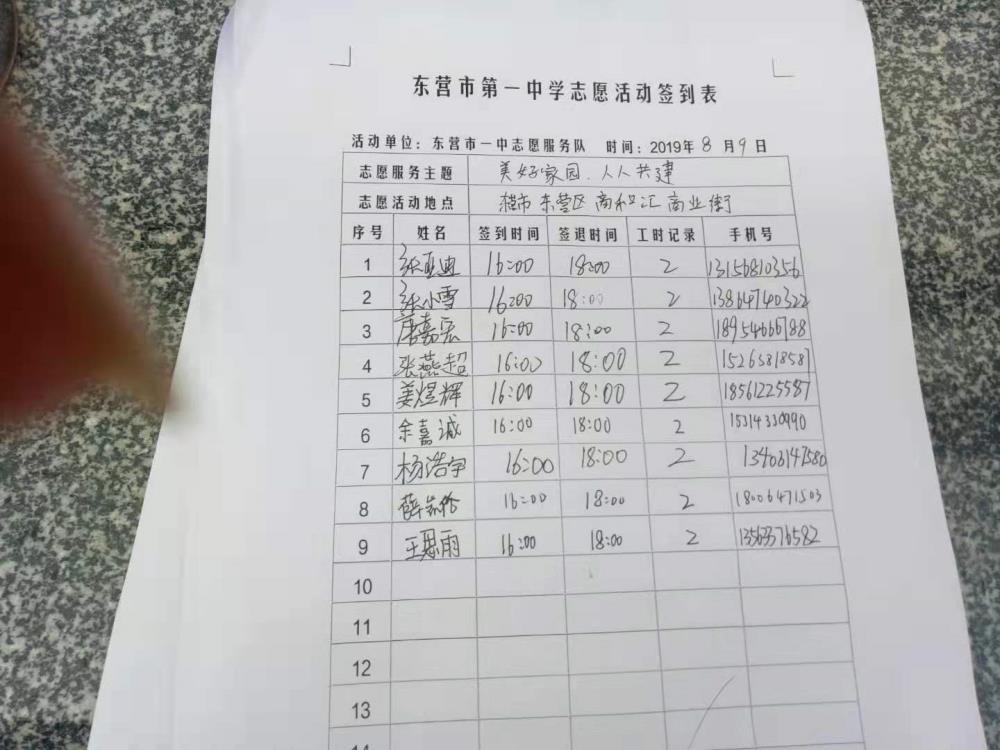 东营市第一中学志愿活动签到表
活动单位：东营市一中志愿服务队 时间：2019年8月9日
志愿服务主题 美好家园、人人共建
志愿活动地点 东营区 商业街
序号 姓名 签到时间 签退时间 工时记录 手机号
1 张亚迪 16:00 18:00 2 13156810356
2 张小雪 16:00 18:00 2 13864740322
3 唐嘉宏 16:00 18:00 2 18954666788
4 张燕超 16:00 18:00 2 15263818587
5 姜煜辉 16:00 18:00 2 18561225587
6 余嘉诚 16:00 18:00 2 15314330990
7 杨浩宇 16:00 18:00 2 13406147580
8 16:00 18:00 2 18006471503
9 16:00 18:00 2 13563376582
10
11
12
13